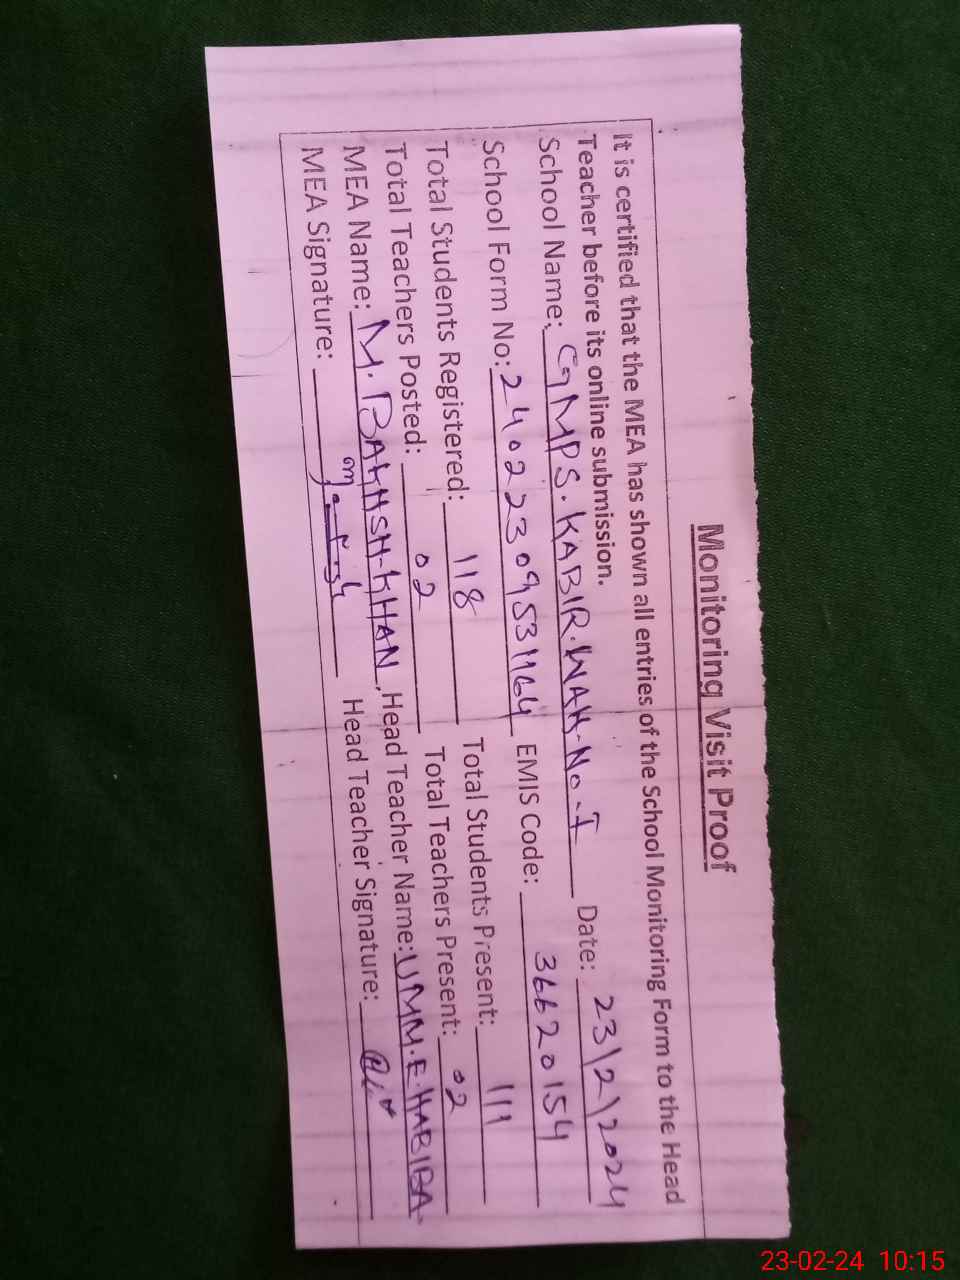 Monitoring Visit Proof
It is certified that the MEA has shown all entries of the School Monitoring Form to the Head
Teacher before its online submission.
School Name: GMPS. KABIR. WAH. No-I Date: 23/2/2024
School Form No: 24022309531164 EMIS Code: 36620154
Total Students Registered: 118 Total Students Present: 111
Total Teachers Posted: 02 Total Teachers Present: 02
MEA Name: M. BAKHSH-KHAN, Head Teacher Name: UMM.E.HABIBA.
MEA Signature: Head Teacher Signature:
23-02-24 10:15